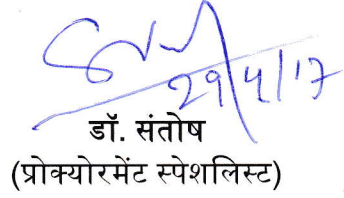 29/4/17
डॉ. संतोष
(प्रोक्योरमेंट स्पेशलिस्ट)